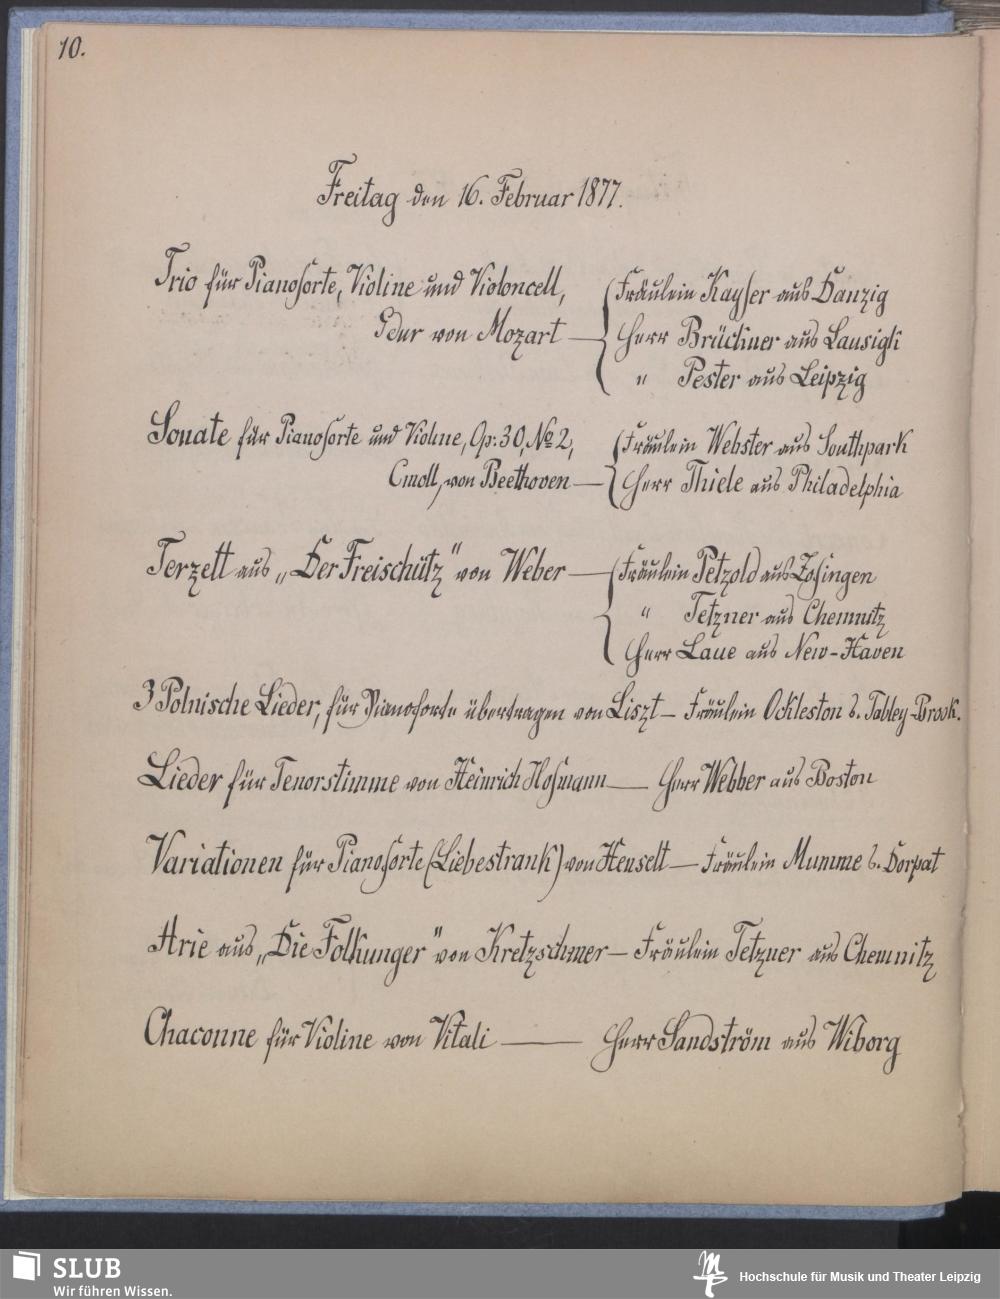 10.
Freitag den 16. Februar 1877.
Trio für Pianoforte, Violine und Violoncell,
Gdur von Mozart —
Fräulein Kayser aus Danzig
Herr Brückner aus Lausigk
" Pester aus Leipzig
Sonate für Pianoforte und Violine, Op: 30, No 2,
Cmoll, von Beethoven —
Fräulein Webster aus Southpark
Herr Thiele aus Philadelphia
Terzett aus „Der Freischütz" von Weber —
Fräulein Petzold aus Zofingen
" Tetzner aus Chemnitz
Herr Laue aus New-Haven
3 Polnische Lieder, für Pianoforte übertragen von Liszt — Fräulein Ockleston a. Tabley-Brook.
Lieder für Tenorstimme von Heinrich Hofmann — Herr Webber aus Boston
Variationen für Pianoforte (Liebestrank) von Henselt — Fräulein Mumme a. Dorpat
Arie aus „Die Folkunger" von Kretzschmer — Fräulein Tetzner aus Chemnitz
Chaconne für Violine von Vitali — Herr Sandström aus Wiborg
SLUB
Wir führen Wissen.
Hochschule für Musik und Theater Leipzig